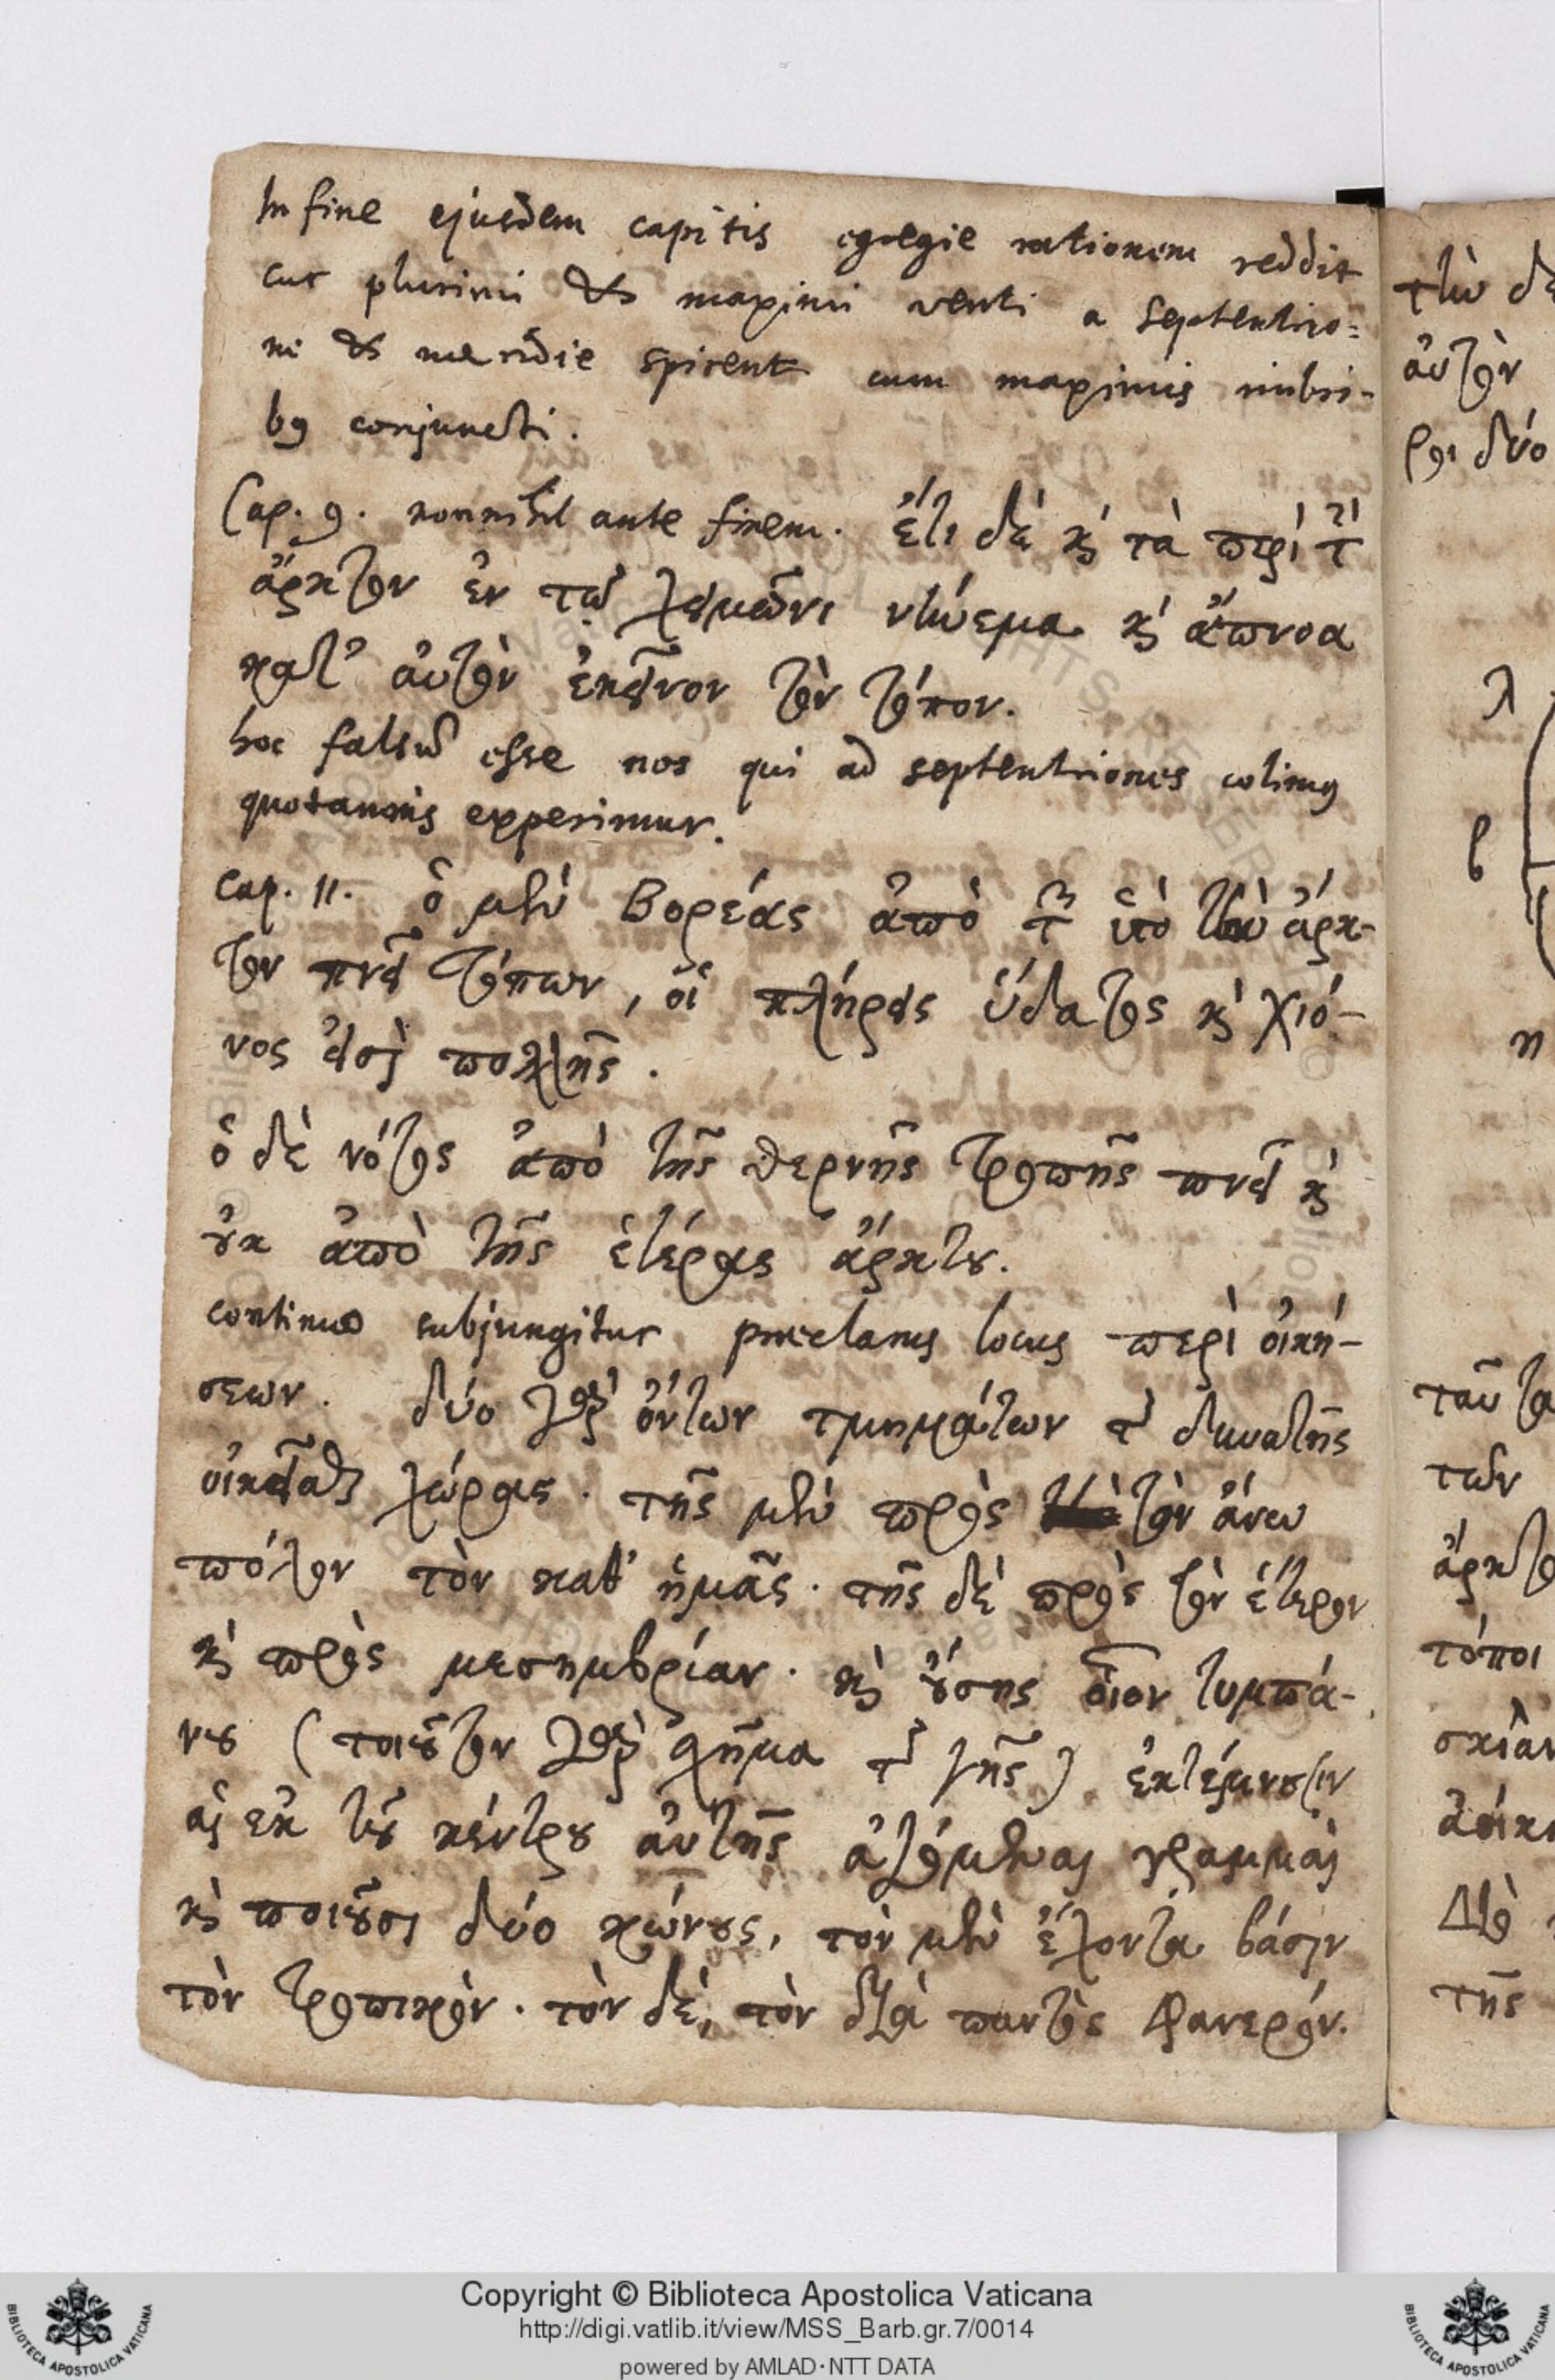 In fine ejusdem capitis egregie rationem reddit
cur plurimi & maximi venti a septentrio=
ni & meridie spirent cum maximis nubi-
bꝯ conjuncti.
Cap. 9. nonnihil ante finem. ἔτι δὲ ϗ τὰ περὶ τὴν
ἄρκτον ἐν τῷ χειμῶνι νήνεμα ϗ ἄπνοα
κατ' αὐτὸν ἐκεῖνον τὸν τόπον.
hoc falsũ esse nos qui ad septentriones colimꝯ
quotannis experimur.
Cap. 11. ὁ μὲν Βορέας ἀπὸ τῶν ὑπὸ τὴν ἄρκ-
τον πνεῖ τόπων, οἳ πλήρεις ὕδατος ϗ χιό-
νος εἰσὶ πολλῆς.
ὁ δὲ νότος ἀπὸ τῆς θερινῆς τροπῆς πνεῖ ϗ
ȣ̓κ ἀπὸ τῆς ἑτέρας ἄρκτȣ.
continuo subjungitur præclarus locus περὶ οἰκή-
σεων. δύο γὰρ ὄντων τμημάτων τῆς δυνατῆς
οἰκεῖσθαι χώρας. τῆς μὲν πρὸς τὸν ἄνω
πόλον τὸν καθ' ἡμᾶς. τῆς δὲ πρὸς τὸν ἕτερον
ϗ πρὸς μεσημβρίαν. ϗ ȣ̓́σης οἷον τυμπά-
νȣ (τοιȣ͂τον γὰρ σχῆμα τῆς γῆς) ἐκτέμνȣσιν
αἱ ἐκ τȣ͂ κέντρȣ αὐτῆς ἀγόμεναι γραμμαὶ
ϗ ποιȣ͂σι δύο κώνȣς, τὸν μὲν ἔχοντα βάσιν
τὸν τροπικὸν. τὸν δὲ, τὸν διὰ παντὸς φανερόν.
τὴν δὲ
αὐτὸν
ροι δύο
λ
β
η
ταῦτα
τῶν
τόποι
σκιὰν
Διὸ
τῆς
Copyright © Biblioteca Apostolica Vaticana
http://digi.vatlib.it/view/MSS_Barb.gr.7/0014
powered by AMLAD·NTT DATA
BIBLIOTECA APOSTOLICA VATICANA
BIBLIOTECA APOSTOLICA VATICANA